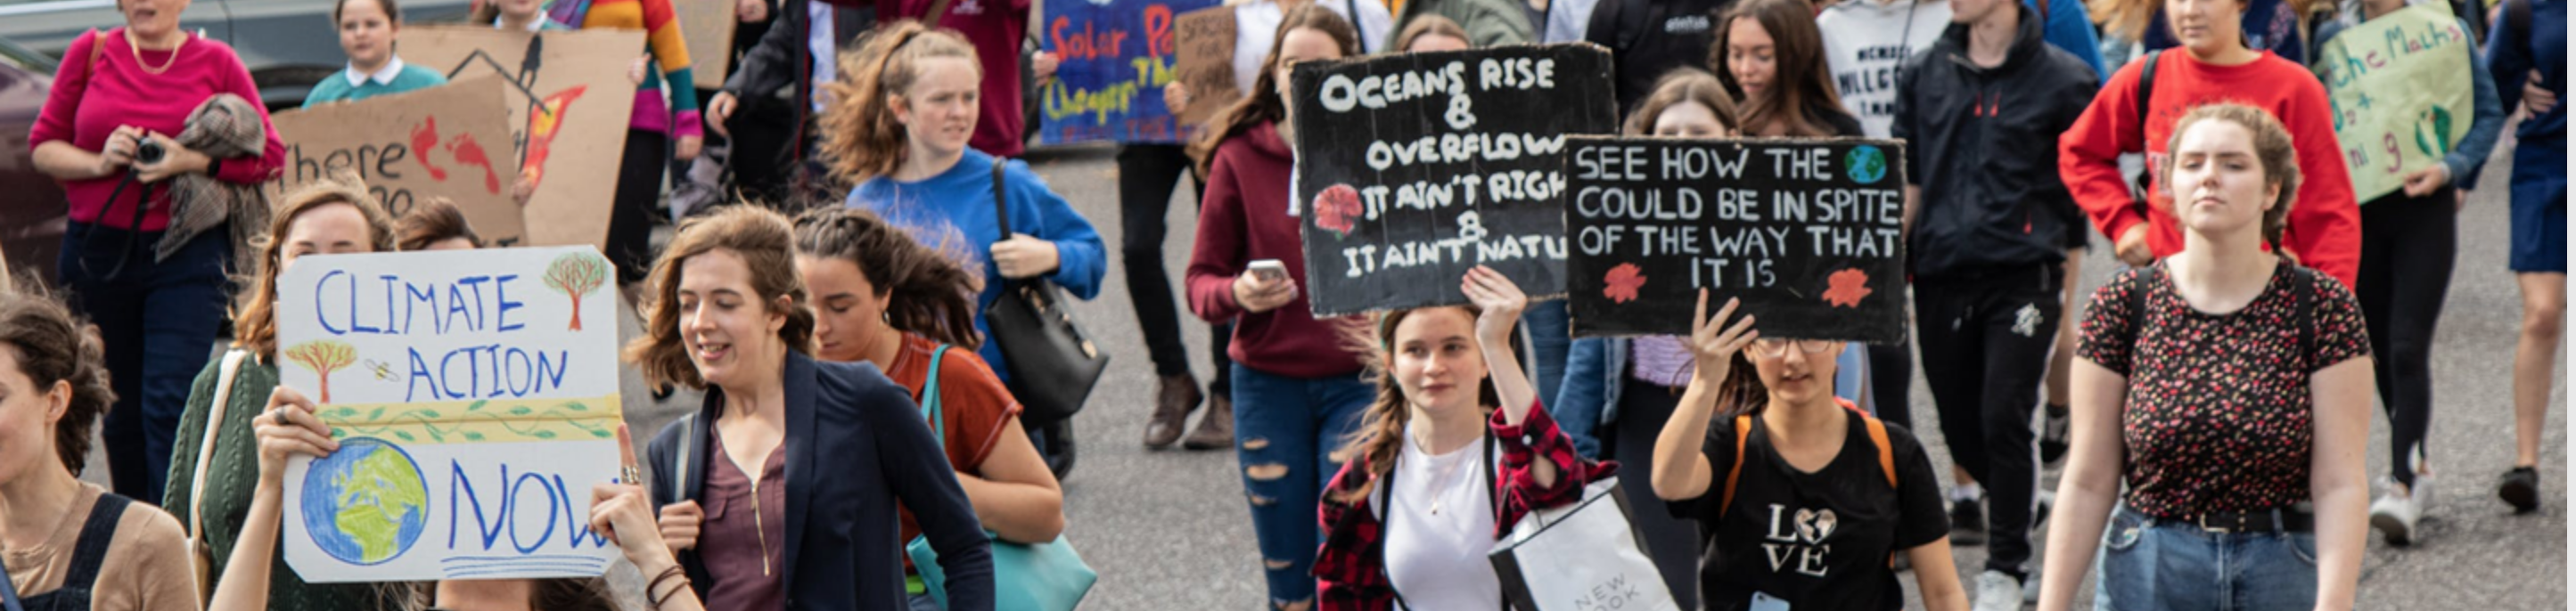 Solar
Cheaper Than
the Maths
OCEANS RISE
&
OVERFLOW
IT AIN'T RIGH
&
IT AIN'T NATU
SEE HOW THE
COULD BE IN SPITE
OF THE WAY THAT
IT IS
here
CLIMATE
ACTION
NOW
LOVE
NEW